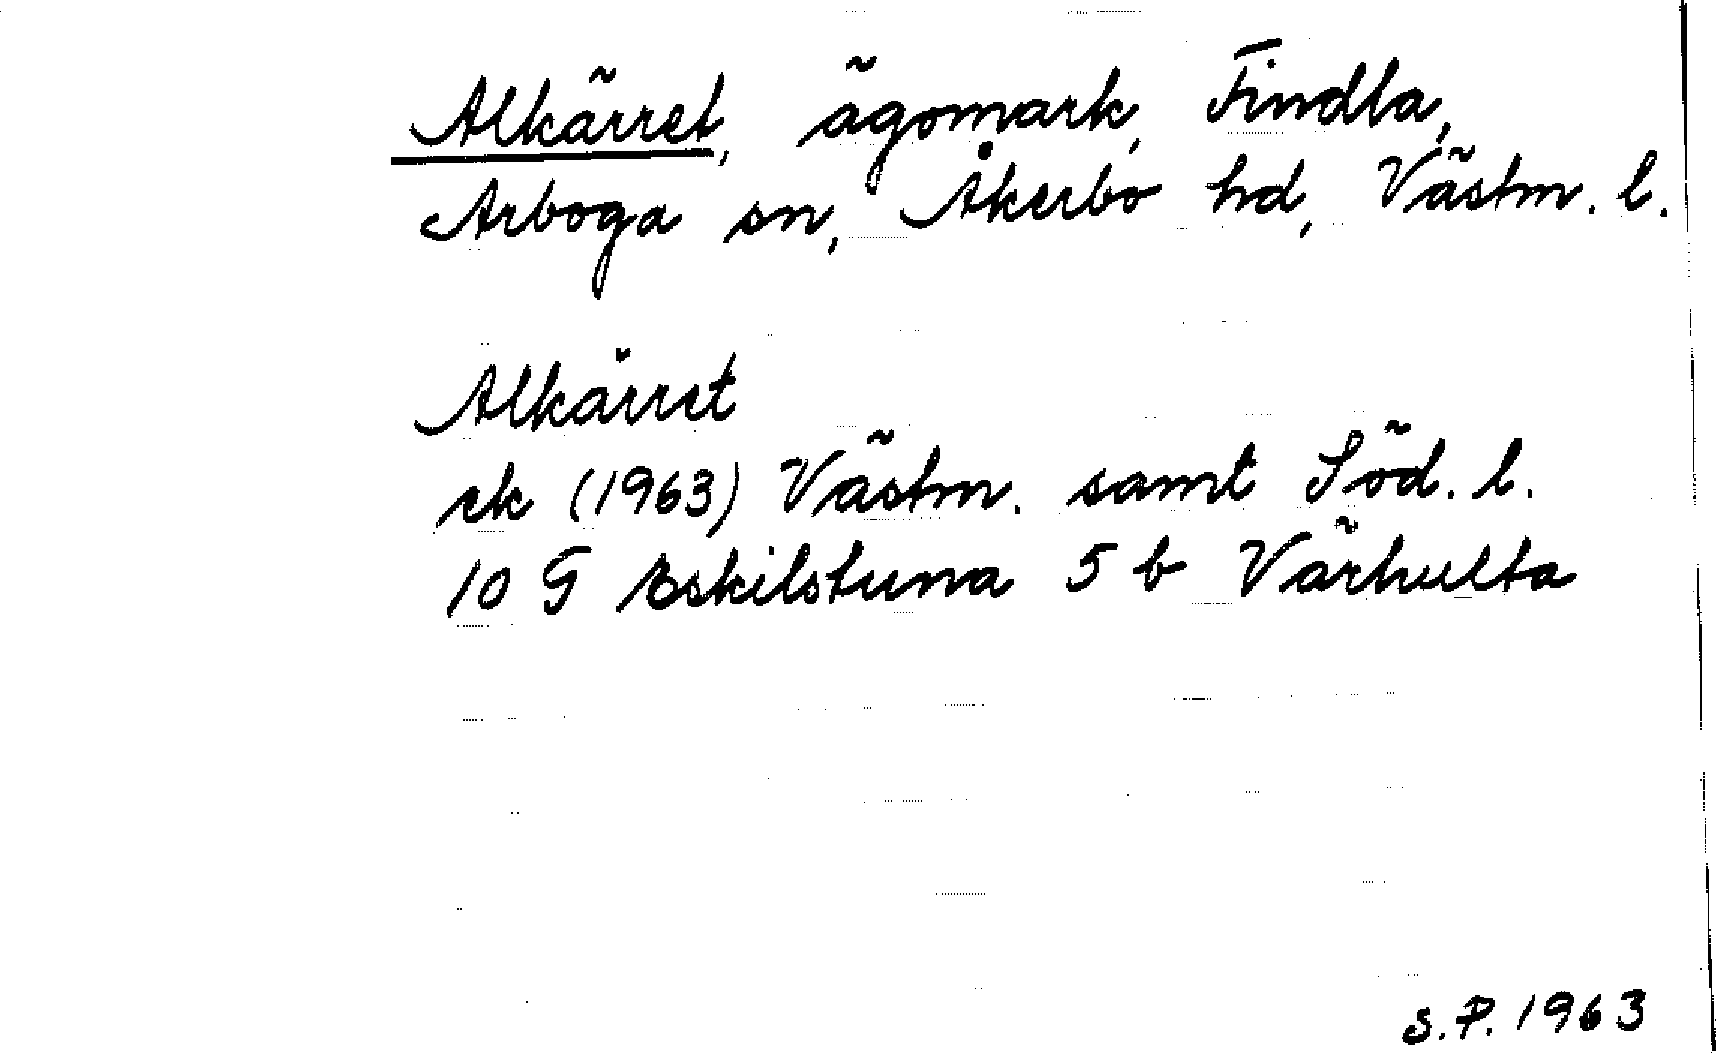 Alkärret, ägomark, Findla,
Arboga sn, Åkerbo hd, Västm. l.
Alkärret
ek (1963) Västm. samt Söd. l.
10 G Eskilstuna 5 b Värhulta
S.P. 1963